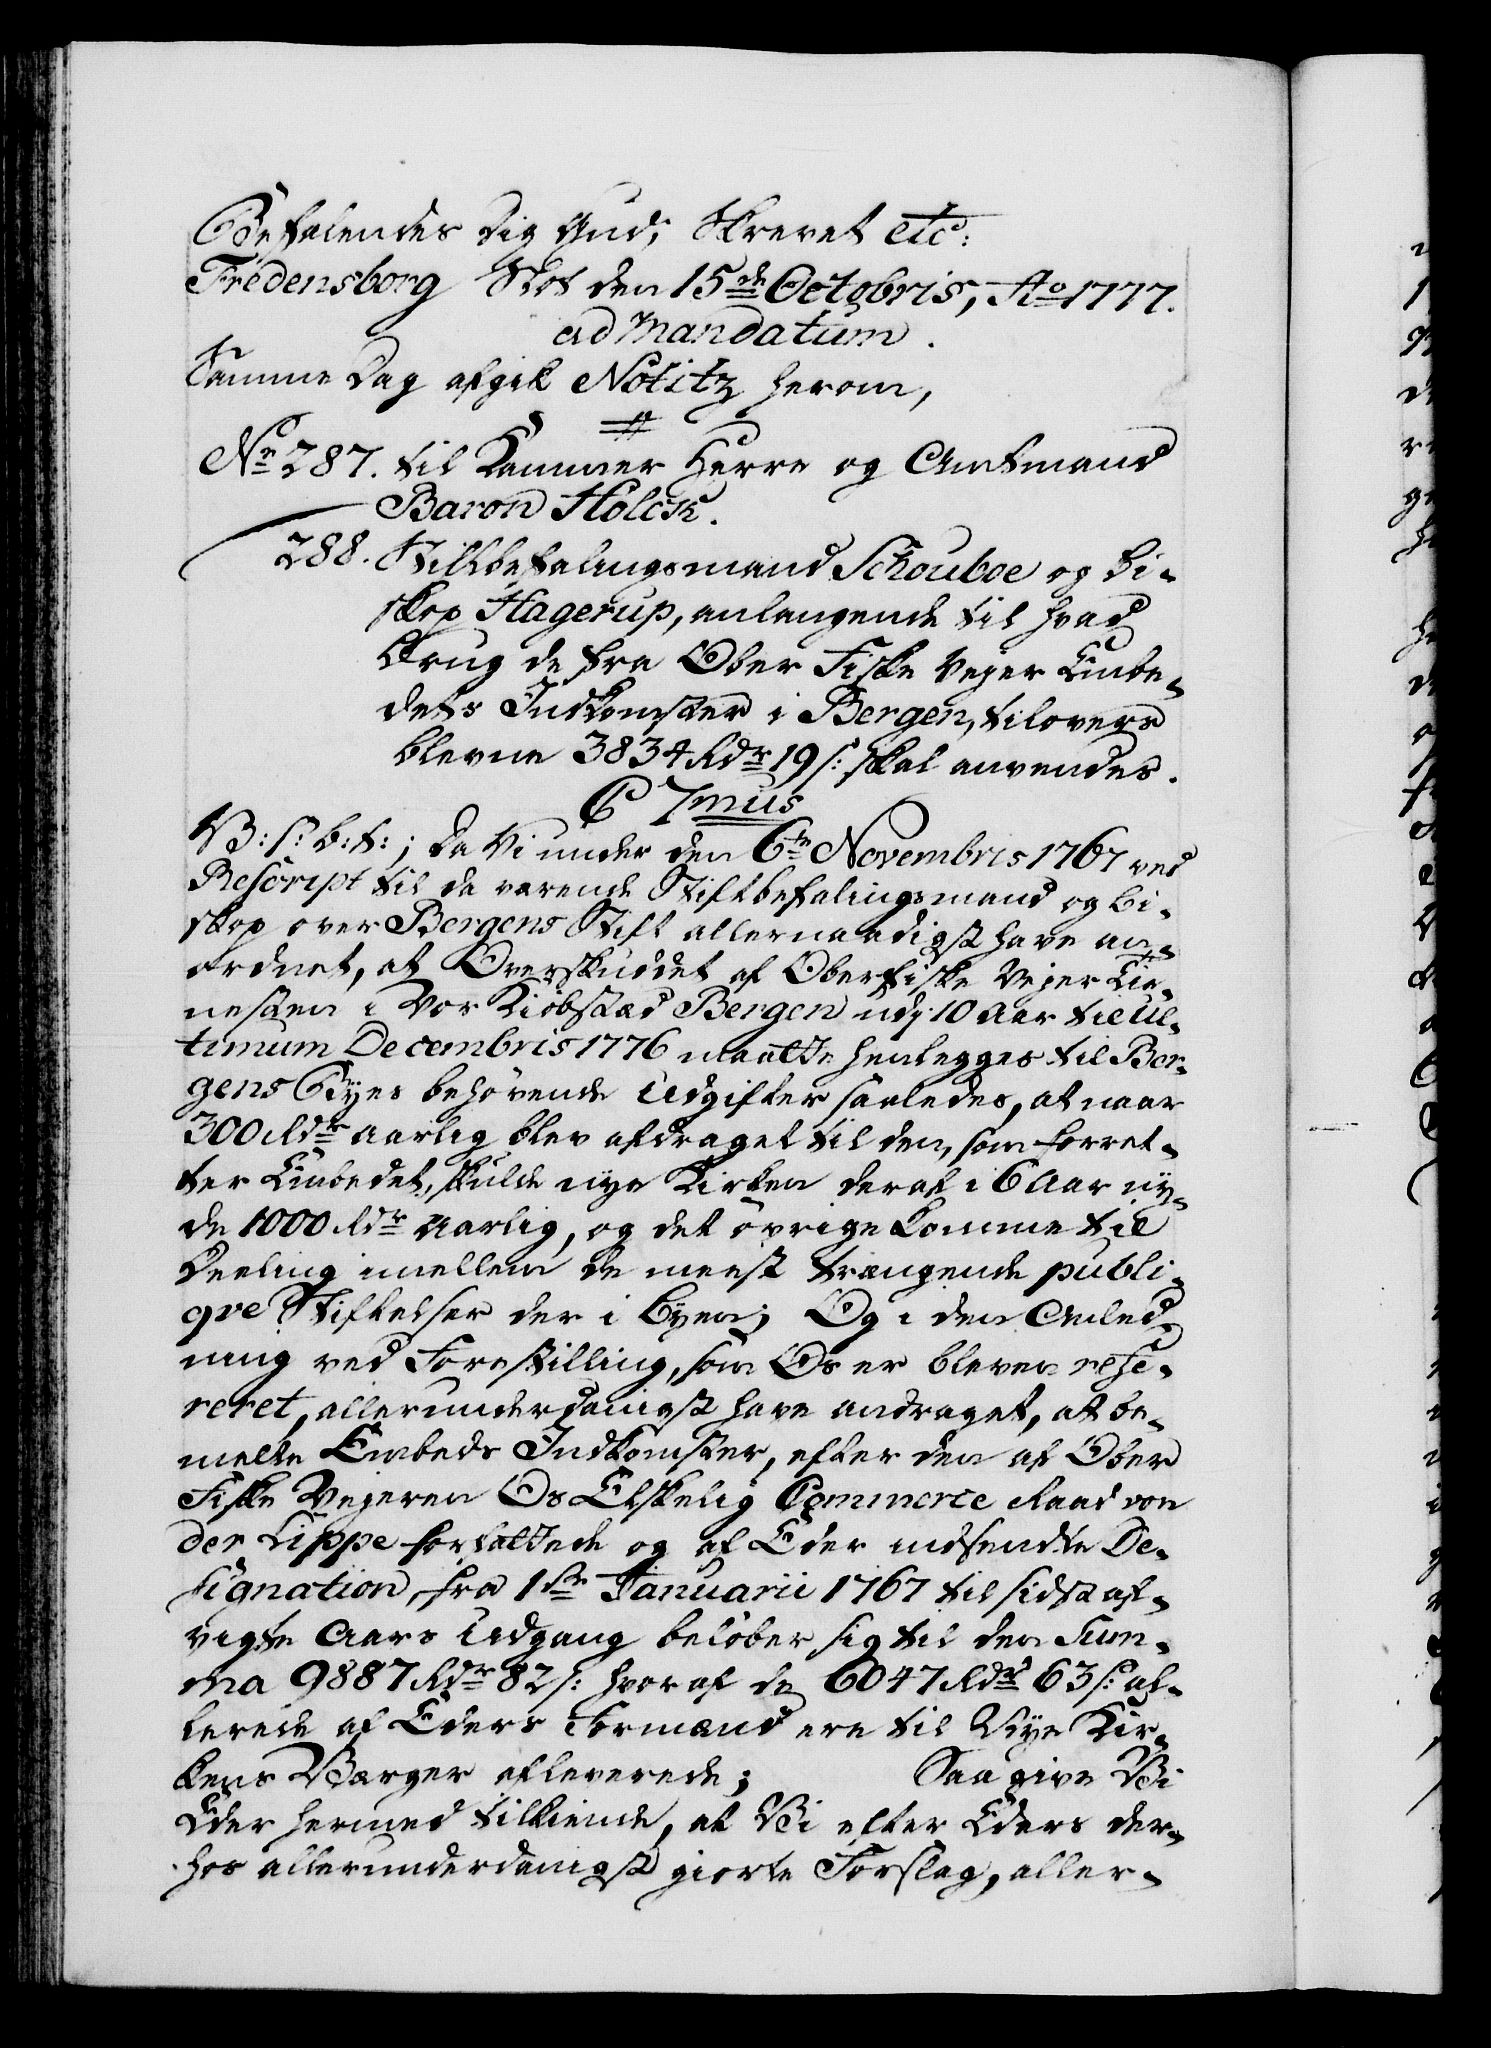 Befalendes dig Gud; Skrevet etc:
Fredensborg Slot den 15de Octobris, Ao 1777.
ad Mandatum.
Samme Dag afgik Notitz herom,
No 287. til Kammer Herre og Amtmand
Baron Holck.
288. Stiftbefalingsmand Schouboe og Bi-
skop Hagerup, anlangende til hvad
Brug de fra Ober Fiske Vejer Embe-
dets Indkomster i Bergen, tilovers
blevne 3834 Rdr 19 s: skal anvendes.
C 7mus
V: s: b: t:; Da Vi under den 6te Novembris 1767 ved
Rescript til da værende Stiftbefalingsmand og Bi-
skop over Bergens Stift allernaadigst have an-
ordnet, at Overskuddet af Oberfiske Vejer Tie-
nesten i Vor Kiöbstæd Bergen udj 10 Aar til Ul-
timum Decembris 1776 maatte henlegges til Ber-
gens Byes behövende Udgifter saaledes, at naar
300 Rdr aarlig blev afdraget til den, som forret-
ter Embedet, skulde nye Kirken deraf i 6 Aar ny-
de 1000 Rdr aarlig, og det övrige komme til
Deeling imellem de meest trængende publi-
qve Stiftelser der i Byen; Og i den Anled-
ning ved Forestilling, som Os er bleven refe-
reret, allerunderdanigst have andraget, at be-
melte Embeds Indkomster, efter den af Ober
Fiske Vejeren Os Elskelig Commerce Raad von
der Lippe forfattede og af Eder indsendte De-
signation, fra 1ste Januarii 1767 til sidst af-
vigte Aars Udgang belöber sig til den Sum-
ma 9887 Rdr 82 s: hvoraf de 6047 Rdr 63 s: al-
lerede af Eders Formænd ere til Nye Kir-
kens Værger afleverede; Saa give Vi
Eder hermed tilkiende, at Vi efter Eders der-
hos allerunderdanigst giorte Forslag, aller-